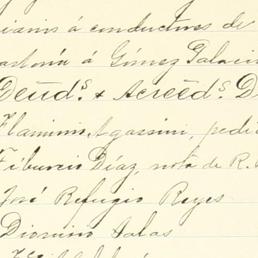 á conductores de
á Gómez Palacio
Deud.s & Acreed.s D
Flaminio Agassini, pedi
Tiburcio Díaz, nota de R.
José Refugio Reyes
Dionisio Salas